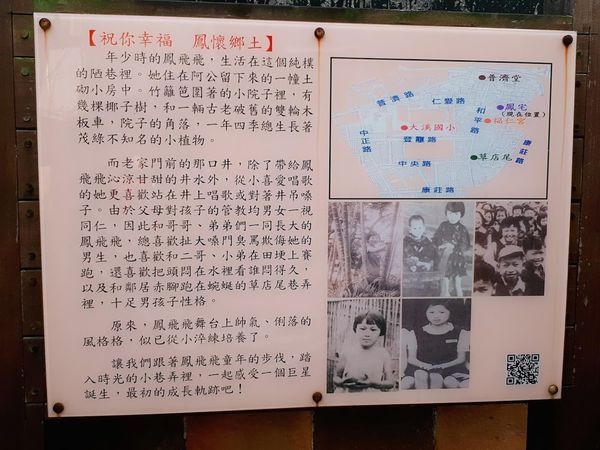 【祝你幸福　鳳懷鄉土】
年少時的鳳飛飛，生活在這個純樸
的陋巷裡。她住在阿公留下來的一幢土
砌小房中。竹籬笆圍著的小院子裡，有
幾棵椰子樹，和一輛古老破舊的雙輪木
板車，院子的角落，一年四季總生長著
茂綠不知名的小植物。
而老家門前的那口井，除了帶給鳳
飛飛沁涼甘甜的井水外，從小喜愛唱歌
的她更喜歡站在井上唱歌或對著井吊嗓
子。由於父母對孩子的管教均男女一視
同仁，因此和哥哥、弟弟們一同長大的
鳳飛飛，總喜歡扯大嗓門臭罵欺侮她的
男生，也喜歡和二哥、小弟在田埂上賽
跑，還喜歡把頭悶在水裡看誰悶得久，
以及和鄰居赤腳跑在蜿蜒的草店尾巷弄
裡，十足男孩子性格。
原來，鳳飛飛舞台上帥氣、俐落的
風格格，似已從小淬練培養了。
讓我們跟著鳳飛飛童年的步伐，踏
入時光的小巷弄裡，一起感受一個巨星
誕生，最初的成長軌跡吧！
普濟堂
普濟路
仁愛路
和平路
鳳宅
(現在位置)
福仁宮
大溪國小
中正路
登龍路
康莊路
草店尾
中央路
康莊路